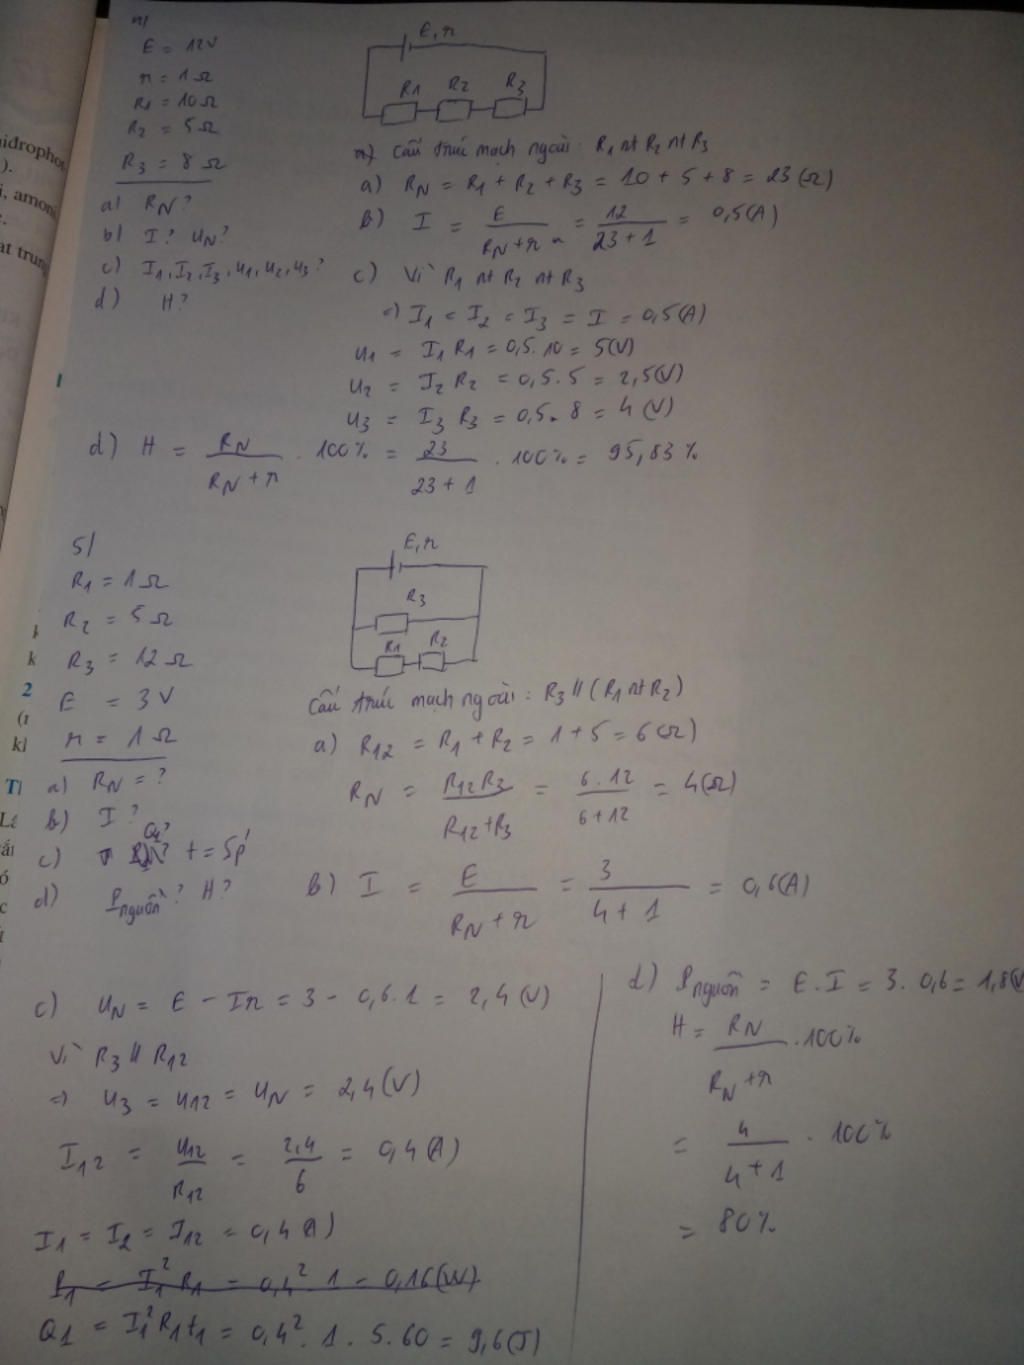 E = 12V
r = 1Ω
R1 = 10Ω
R2 = 5Ω
R3 = 8Ω
a) RN?
b) I? UN?
c) I1, I2, I3, U1, U2, U3?
d) H?
E, r
R1 R2 R3
Cấu trúc mạch ngoài: R1 nt R2 nt R3
a) RN = R1 + R2 + R3 = 10 + 5 + 8 = 23 (Ω)
b) I = E / (RN + r) = 12 / (23 + 1) = 0,5(A)
c) Vì R1 nt R2 nt R3
=> I1 = I2 = I3 = I = 0,5(A)
U1 = I1 R1 = 0,5. 10 = 5(V)
U2 = I2 R2 = 0,5. 5 = 2,5(V)
U3 = I3 R3 = 0,5. 8 = 4 (V)
d) H = RN / (RN + r) . 100% = 23 / (23 + 1) . 100% = 95,83%
5/
R1 = 1Ω
R2 = 5Ω
R3 = 12Ω
E = 3V
r = 1Ω
a) RN = ?
b) I?
c) Q1? t = 5p'
d) Pnguồn? H?
E, r
R3
R1 R2
Cấu trúc mạch ngoài: R3 // (R1 nt R2)
a) R12 = R1 + R2 = 1 + 5 = 6(Ω)
RN = R12 R3 / (R12 + R3) = 6 . 12 / (6 + 12) = 4(Ω)
b) I = E / (RN + r) = 3 / (4 + 1) = 0,6(A)
c) UN = E - Ir = 3 - 0,6. 1 = 2,4 (V)
Vì R3 // R12
=> U3 = U12 = UN = 2,4(V)
I12 = U12 / R12 = 2,4 / 6 = 0,4 (A)
I1 = I2 = I12 = 0,4(A)
P1 = I1² R1 = 0,4² . 1 = 0,16(W)
Q1 = I1² R1 t1 = 0,4² . 1 . 5. 60 = 9,6(J)
d) Pnguồn = E. I = 3. 0,6 = 1,8(
H = RN / (RN + r) . 100%
= 4 / (4 + 1) . 100%
= 80%
idrophot
).
i, amoni
at trung
2